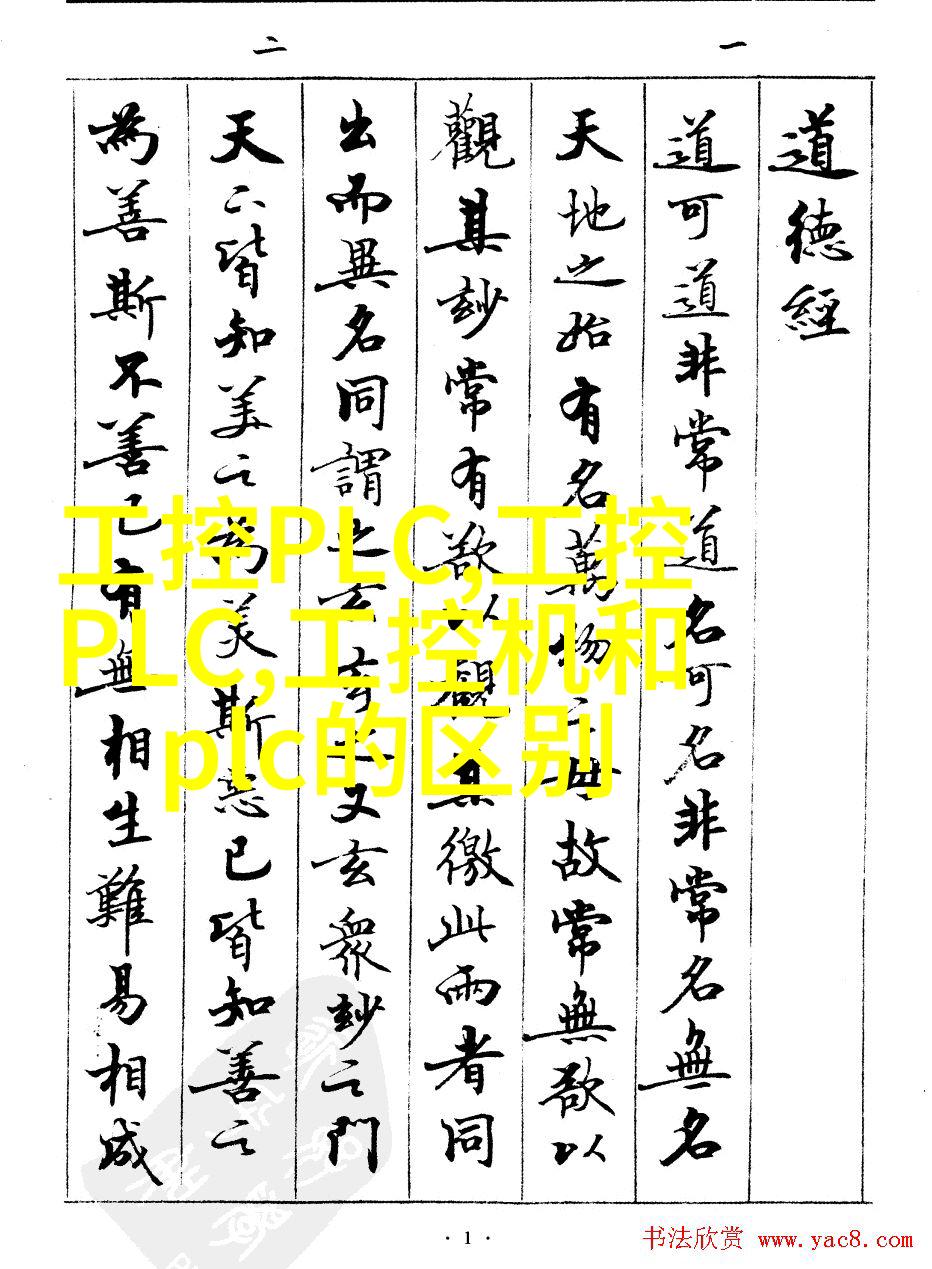 一
二
道德經
道可道非常道名可名非常名無名
天地之始有名萬物之母故常無欲以
觀其玅常有欲以觀其徼此兩者同
出而異名同謂之玄玄之又玄衆玅之門
天下皆知美之為美斯惡已皆知善之
為善斯不善已有無相生難易相成
工控PLC,工控
PLC,工控机和
plc的区别
· 1 ·
书法欣赏 www.yac8.com